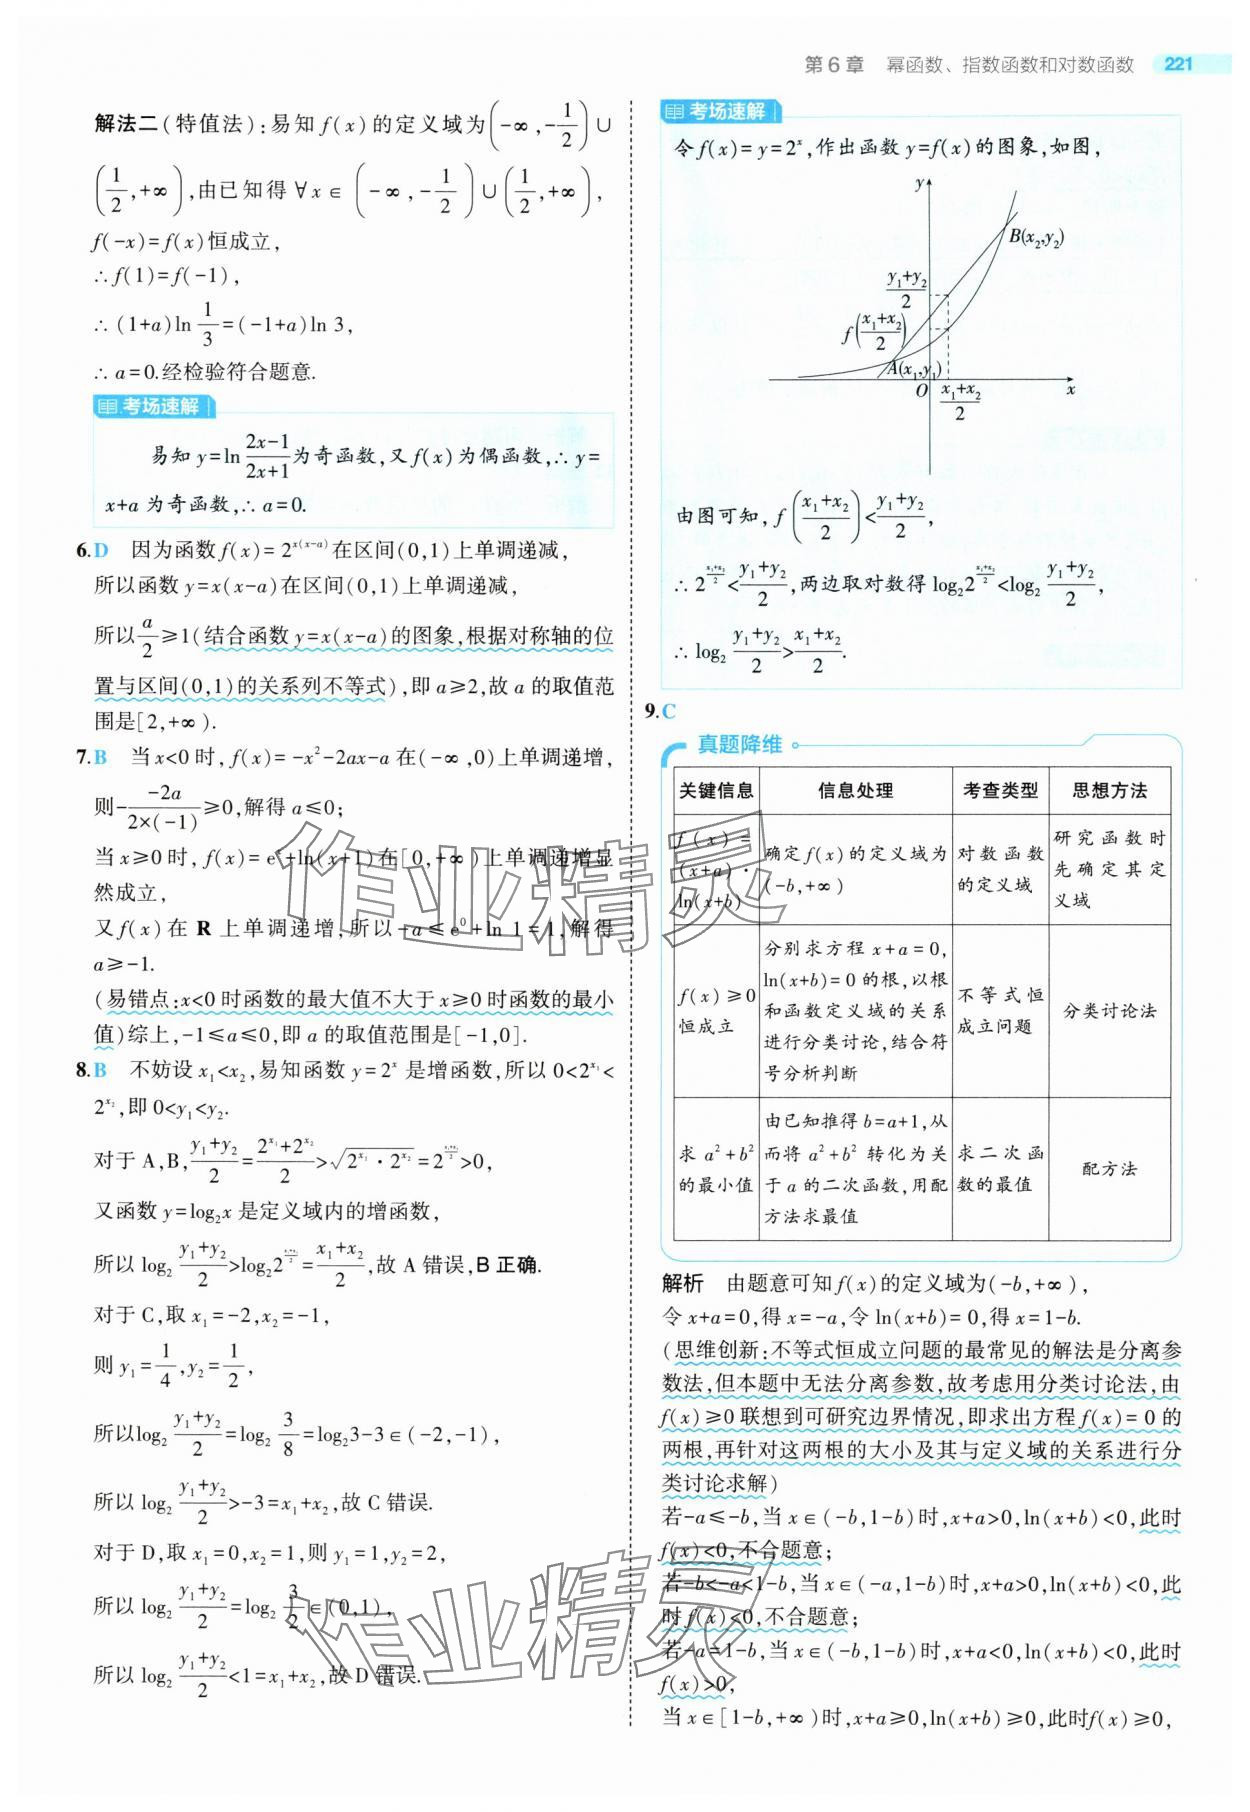 第6章 幂函数、指数函数和对数函数 221
解法二(特值法):易知f(x)的定义域为(-∞,-1/2)∪
(1/2,+∞),由已知得∀x∈(-∞,-1/2)∪(1/2,+∞),
f(-x)=f(x)恒成立,
∴f(1)=f(-1),
∴(1+a)ln 1/3=(-1+a)ln 3,
∴a=0.经检验符合题意.
考场速解
易知y=ln (2x-1)/(2x+1)为奇函数,又f(x)为偶函数,∴y=
x+a为奇函数,∴a=0.
6.D 因为函数f(x)=2^{x(x-a)}在区间(0,1)上单调递减,
所以函数y=x(x-a)在区间(0,1)上单调递减,
所以a/2≥1(结合函数y=x(x-a)的图象,根据对称轴的位
置与区间(0,1)的关系列不等式),即a≥2,故a的取值范
围是[2,+∞).
7.B 当x<0时,f(x)=-x²-2ax-a在(-∞,0)上单调递增,
则-(-2a)/(2×(-1))≥0,解得a≤0;
当x≥0时,f(x)=eˣ+ln(x+1)在[0,+∞)上单调递增显
然成立,
又f(x)在R上单调递增,所以-a≤e⁰+ln 1=1,解得
a≥-1.
(易错点:x<0时函数的最大值不大于x≥0时函数的最小
值)综上,-1≤a≤0,即a的取值范围是[-1,0].
8.B 不妨设x₁<x₂,易知函数y=2ˣ是增函数,所以0<2^{x₁}<
2^{x₂},即0<y₁<y₂.
对于A,B,(y₁+y₂)/2=(2^{x₁}+2^{x₂})/2>√(2^{x₁}·2^{x₂})=2^{(x₁+x₂)/2}>0,
又函数y=log₂x是定义域内的增函数,
所以log₂ (y₁+y₂)/2>log₂2^{(x₁+x₂)/2}=(x₁+x₂)/2,故A错误,B正确.
对于C,取x₁=-2,x₂=-1,
则y₁=1/4,y₂=1/2,
所以log₂ (y₁+y₂)/2=log₂ 3/8=log₂3-3∈(-2,-1),
所以log₂ (y₁+y₂)/2>-3=x₁+x₂,故C错误.
对于D,取x₁=0,x₂=1,则y₁=1,y₂=2,
所以log₂ (y₁+y₂)/2=log₂ 3/2∈(0,1),
所以log₂ (y₁+y₂)/2<1=x₁+x₂,故D错误.
考场速解
令f(x)=y=2ˣ,作出函数y=f(x)的图象,如图,
y
B(x₂,y₂)
(y₁+y₂)/2
f((x₁+x₂)/2)
A(x₁,y₁)
O (x₁+x₂)/2 x
由图可知,f((x₁+x₂)/2)<(y₁+y₂)/2,
∴2^{(x₁+x₂)/2}<(y₁+y₂)/2,两边取对数得log₂2^{(x₁+x₂)/2}<log₂ (y₁+y₂)/2,
∴log₂ (y₁+y₂)/2>(x₁+x₂)/2.
9.C
真题降维
关键信息 信息处理 考查类型 思想方法
f(x)=(x+a)·ln(x+b) 确定f(x)的定义域为(-b,+∞) 对数函数的定义域 研究函数时先确定其定义域
f(x)≥0恒成立 分别求方程x+a=0,ln(x+b)=0的根,以根和函数定义域的关系进行分类讨论,结合符号分析判断 不等式恒成立问题 分类讨论法
求a²+b²的最小值 由已知推得b=a+1,从而将a²+b²转化为关于a的二次函数,用配方法求最值 求二次函数的最值 配方法
解析 由题意可知f(x)的定义域为(-b,+∞),
令x+a=0,得x=-a,令ln(x+b)=0,得x=1-b.
(思维创新:不等式恒成立问题的最常见的解法是分离参
数法,但本题中无法分离参数,故考虑用分类讨论法,由
f(x)≥0联想到可研究边界情况,即求出方程f(x)=0的
两根,再针对这两根的大小及其与定义域的关系进行分
类讨论求解)
若-a≤-b,当x∈(-b,1-b)时,x+a>0,ln(x+b)<0,此时
f(x)<0,不合题意;
若-b<-a<1-b,当x∈(-a,1-b)时,x+a>0,ln(x+b)<0,此
时f(x)<0,不合题意;
若-a=1-b,当x∈(-b,1-b)时,x+a<0,ln(x+b)<0,此时
f(x)>0,
当x∈[1-b,+∞)时,x+a≥0,ln(x+b)≥0,此时f(x)≥0,
作业精灵
作业精灵